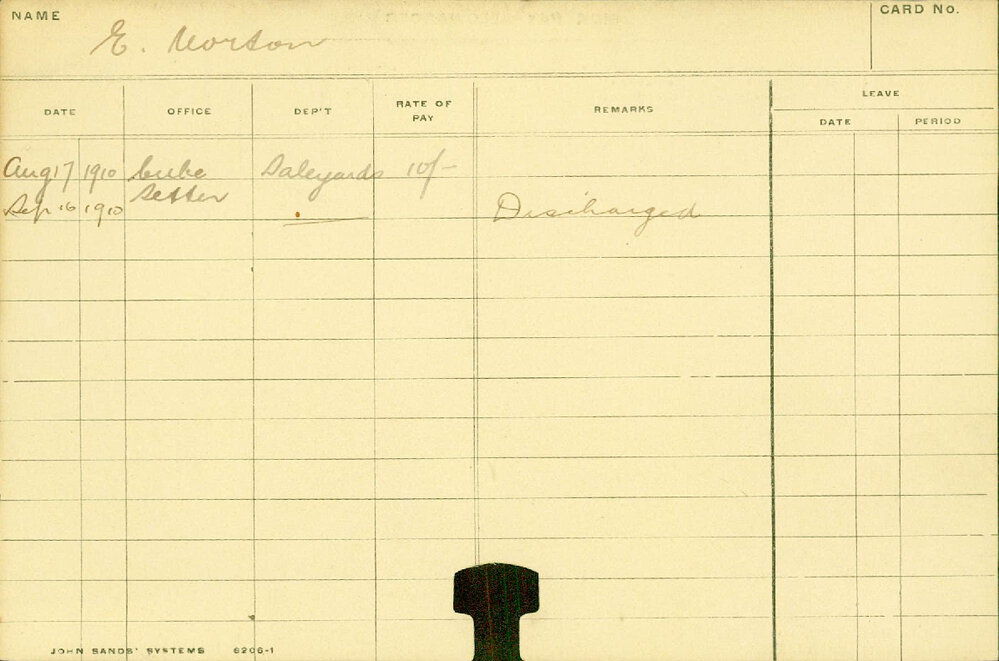 NAME
CARD NO.
E. Norton
DATE OFFICE DEP'T RATE OF PAY REMARKS LEAVE
DATE PERIOD
Aug 17 1910 Cube Saleyards 10/-
Setter
Sep 16 1910 Discharged
JOHN SANDS' SYSTEMS 6206-1